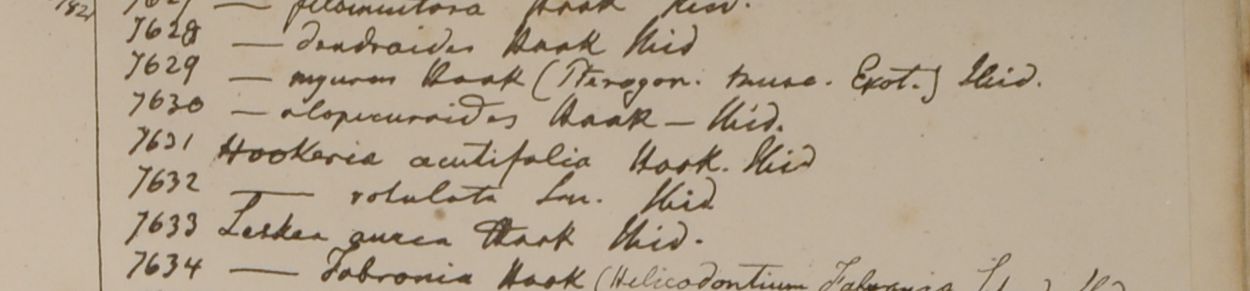 7627 — filamentosa Hook Ibid.
7628 — dendroides Hook Ibid
7629 — myurum Hook (Pterogon. musc. Exot.) Ibid.
7630 — alopecuroides Hook — Ibid.
7631 Hookeria acutifolia Hook. Ibid
7632 — rotulata Sm. Ibid
7633 Leskea aurea Hook Ibid.
7634 — Fabronia Hook (Helicodontium Fabronia